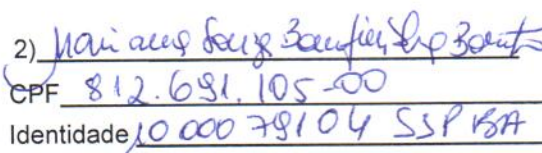 2) Mariana Souza Bomfim
CPF 812.691.105-00
Identidade 10 000 79104 SSP BA